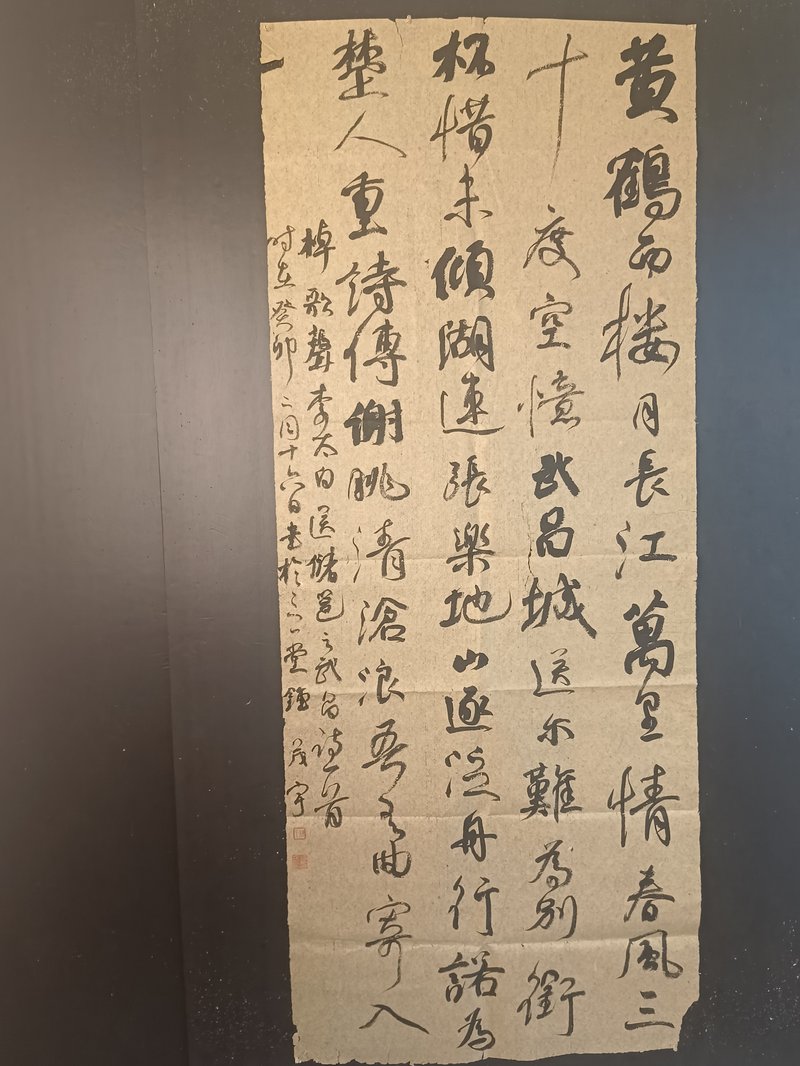 黄鶴西楼月長江萬里情春風三
十度空憶武昌城送尔難為别銜
杯惜未傾湖連張樂地山逐泛舟行諾為
楚人重詩傳謝朓清滄浪吾有曲寄入
棹歌聲李太白送儲邕之武昌诗一首
时在癸卯二月十六日書於堂茂宇